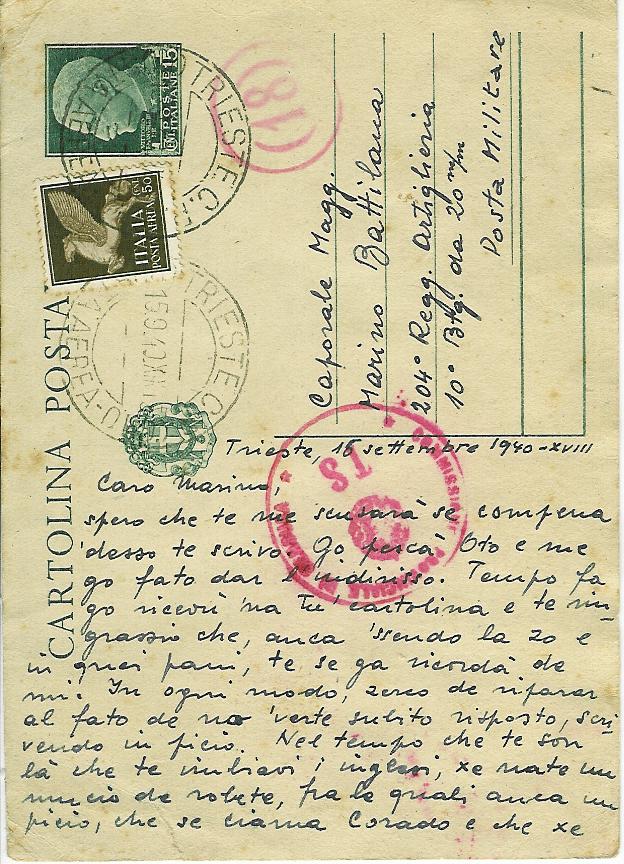 POSTE ITALIANE
15
CENT.
ITALIA
POSTA AEREA
CENT. 50
TRIESTE C.
(18)
CARTOLINA POSTA
Caporale Magg.
Marino Battilana
204° Regg. Artiglieria
10° Btg. da 20 m/m
Posta Militare
TRIESTE C
COMMISSIONE PROVINCIALE DI
TS
Trieste, 15 settembre 1940-XVIII
Caro Marino,
spero che te me scusarà se compena
'desso te scrivo. Go pescà Oto e me
go fato dar l'indirisso. Tempo fa
go ricevù 'na tu' cartolina e te rin-
grassio che, anca 'ssendo la zo e
in quei pani, te se ga ricordà de
mi. In ogni modo, zerco de riparar
al fato de no 'verte subito risposto, scri-
vendo in picio. Nel tempo che te son
là che te imbiavi i inglesi, xe nate un
mucio de robete, fra le quali anca un
picio, che se ciama Corado e che xe